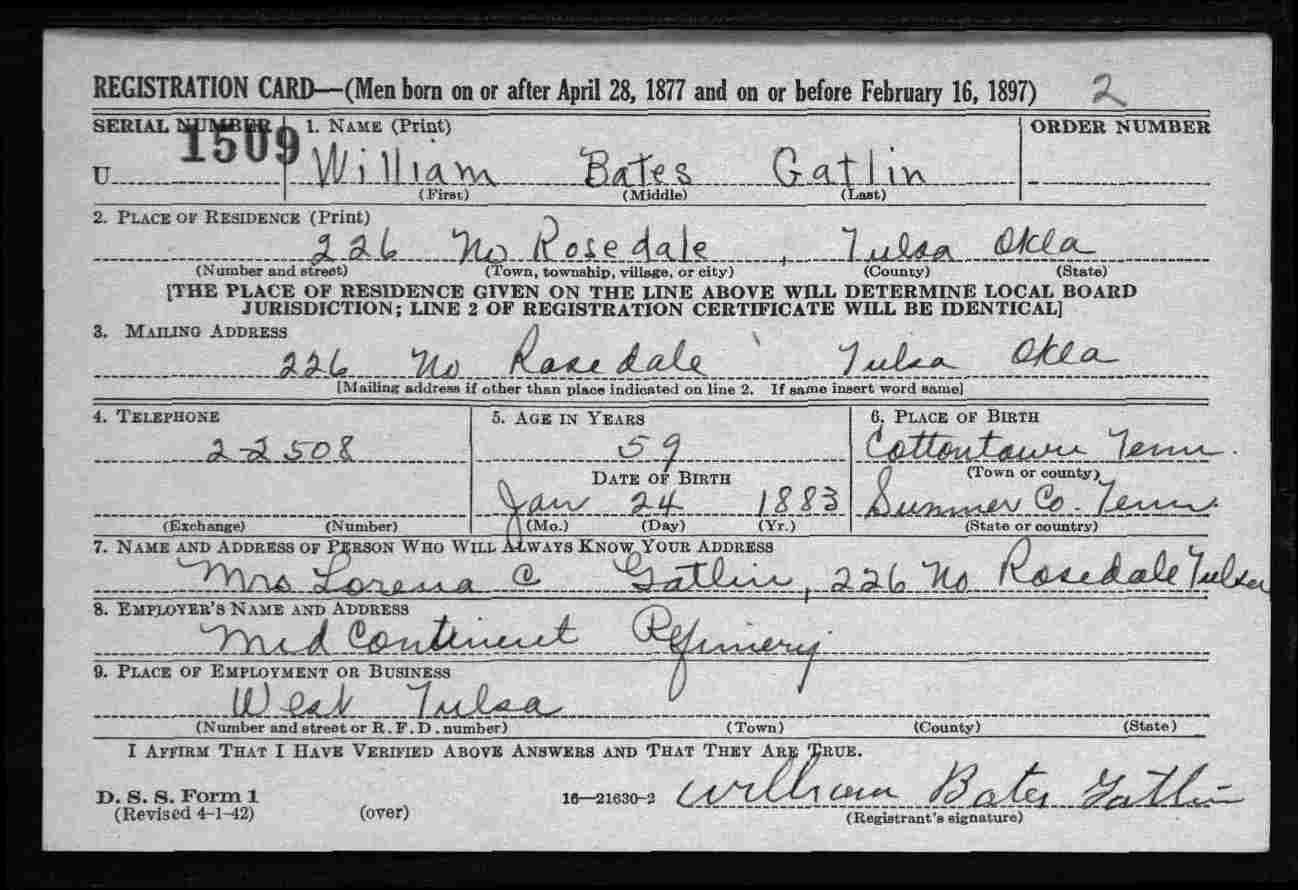 REGISTRATION CARD—(Men born on or after April 28, 1877 and on or before February 16, 1897) 2
SERIAL NUMBER 1. NAME (Print) ORDER NUMBER
1509
U William Bates Gatlin
(First) (Middle) (Last)
2. PLACE OF RESIDENCE (Print)
226 No Rosedale, Tulsa Okla
(Number and street) (Town, township, village, or city) (County) (State)
[THE PLACE OF RESIDENCE GIVEN ON THE LINE ABOVE WILL DETERMINE LOCAL BOARD
JURISDICTION; LINE 2 OF REGISTRATION CERTIFICATE WILL BE IDENTICAL]
3. MAILING ADDRESS
226 No Rosedale Tulsa Okla
[Mailing address if other than place indicated on line 2. If same insert word same]
4. TELEPHONE 5. AGE IN YEARS 6. PLACE OF BIRTH
2-2508 59 Cottontown Tenn.
DATE OF BIRTH (Town or county)
Jan 24 1883 Sumner Co. Tenn.
(Exchange) (Number) (Mo.) (Day) (Yr.) (State or country)
7. NAME AND ADDRESS OF PERSON WHO WILL ALWAYS KNOW YOUR ADDRESS
Mrs Lorena C Gatlin, 226 No Rosedale Tulsa
8. EMPLOYER'S NAME AND ADDRESS
Mid Continent Refinery
9. PLACE OF EMPLOYMENT OR BUSINESS
West Tulsa
(Number and street or R. F. D. number) (Town) (County) (State)
I AFFIRM THAT I HAVE VERIFIED ABOVE ANSWERS AND THAT THEY ARE TRUE.
D. S. S. Form 1 16—21630-2 William Bates Gatlin
(Revised 4-1-42) (over) (Registrant's signature)